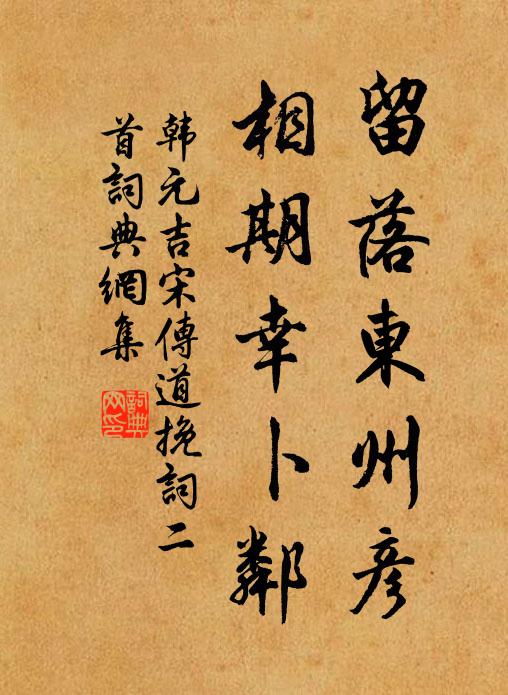 留落東州彥
相期幸卜鄰
韩元吉宋傅道挽詞二
首詞典網集
詞典
网印